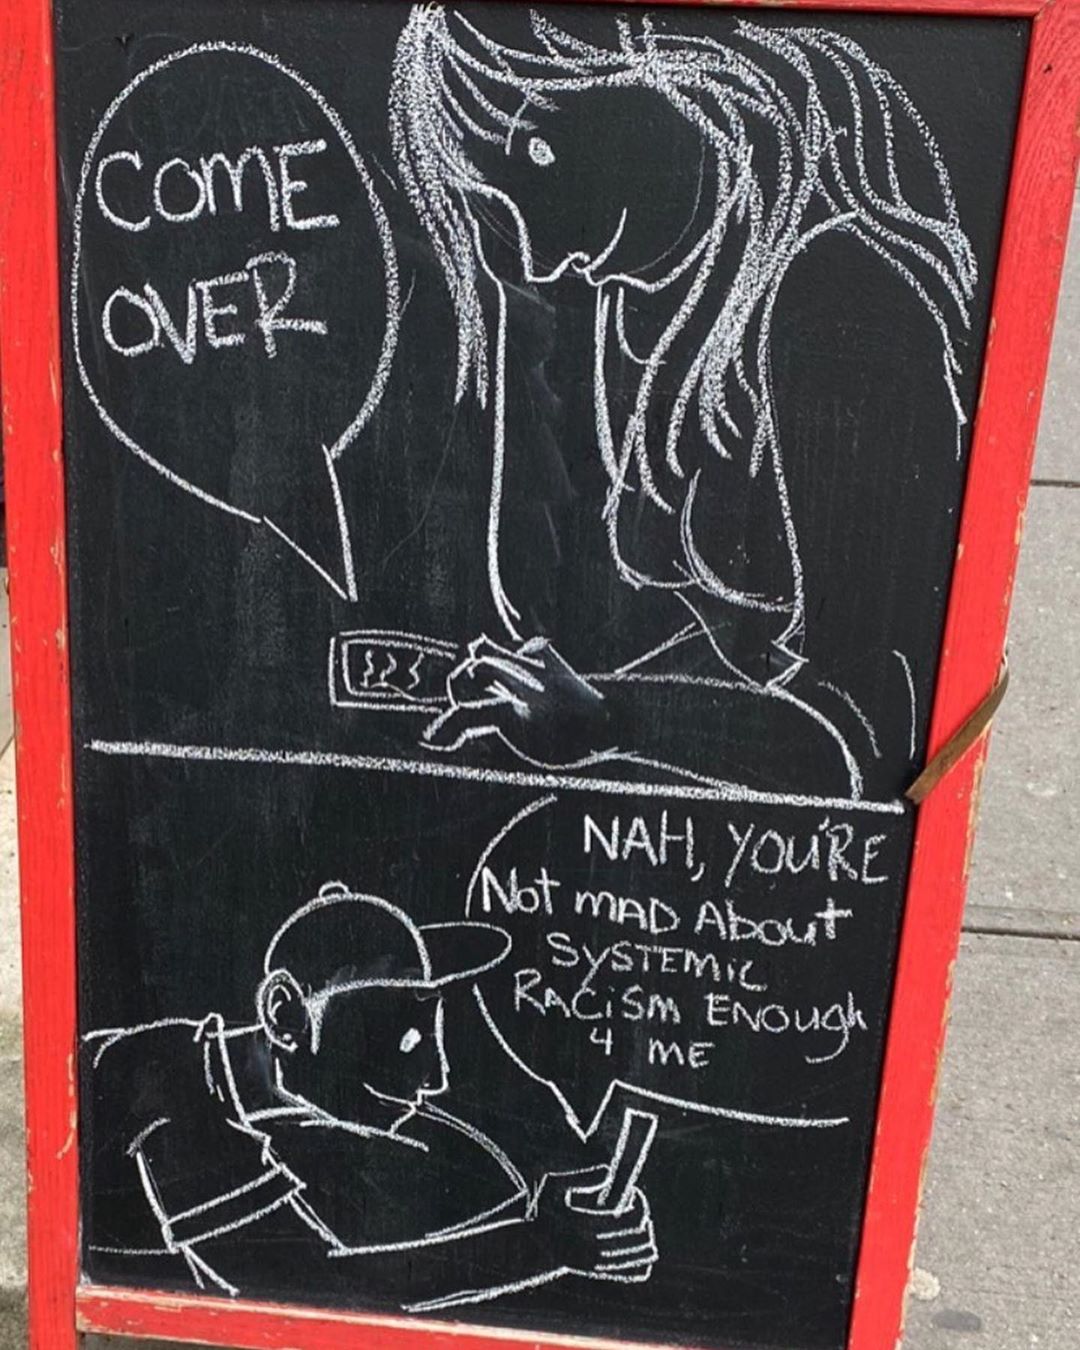 COME
OVER
NAH, YOU'RE
Not mAD About
SYSTEMiC
RACiSM ENOUgh
4 ME